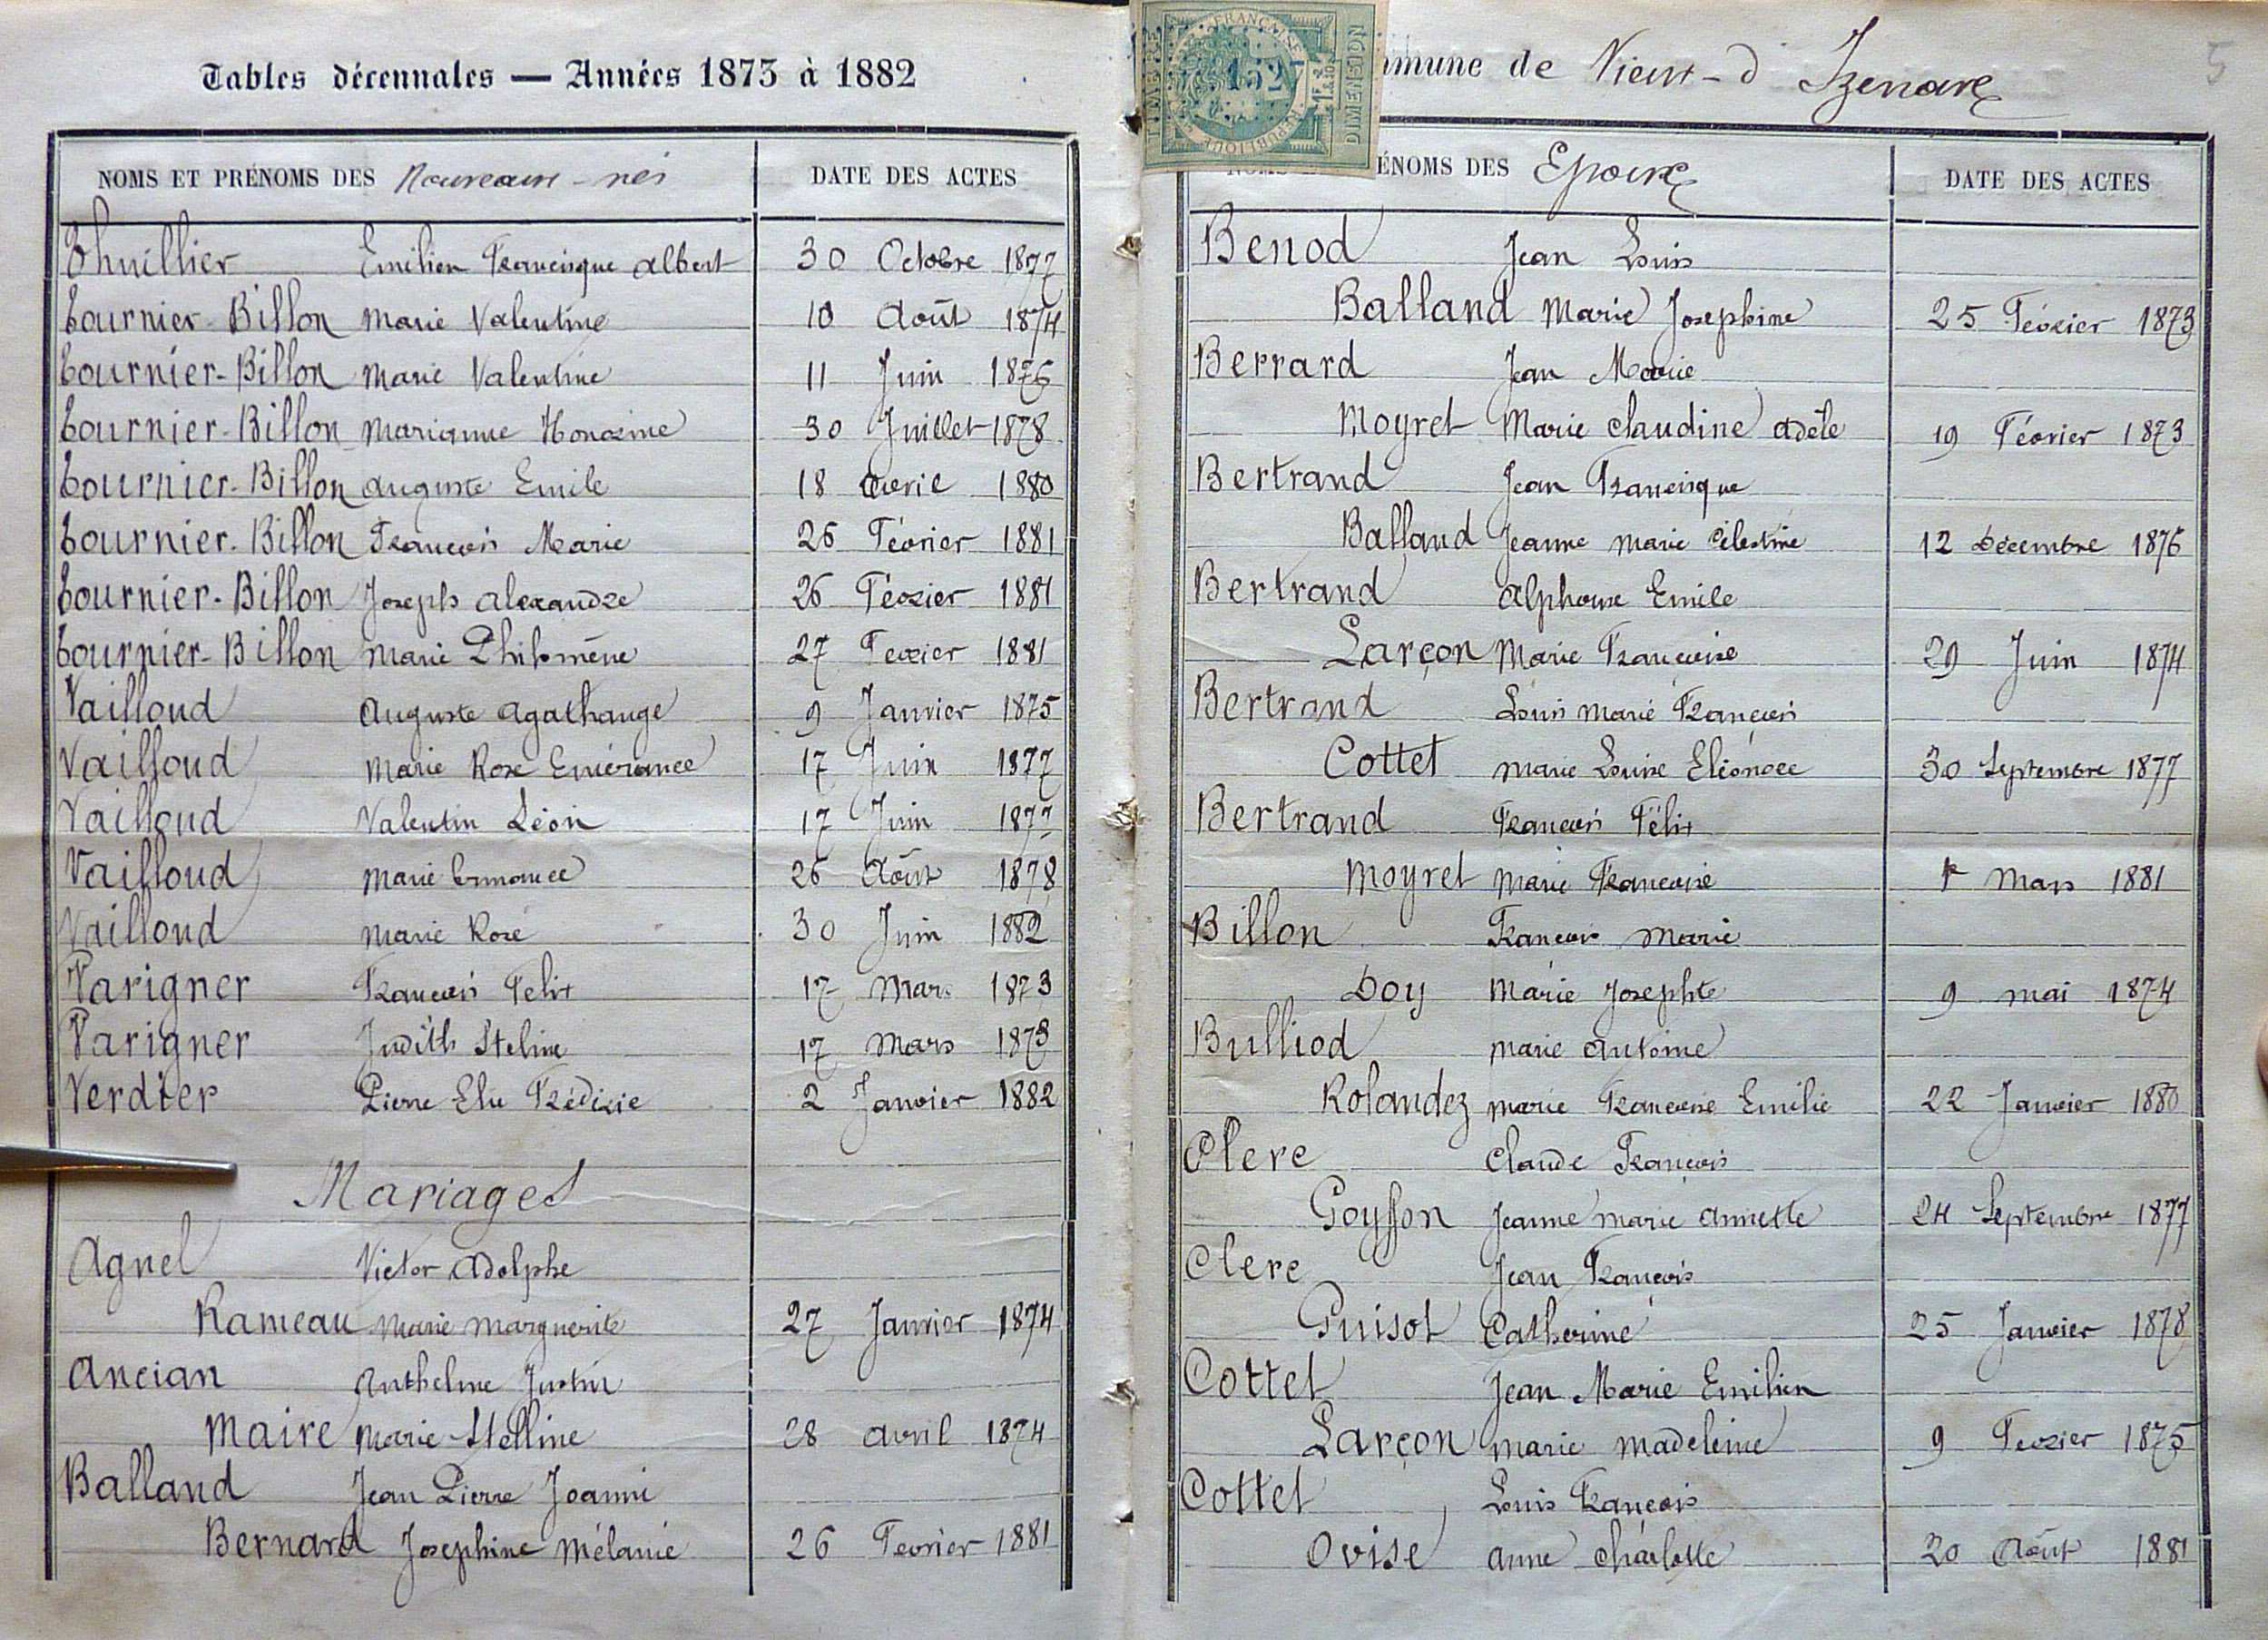 Tables décennales — Années 1873 à 1882
NOMS ET PRÉNOMS DES Nouveaux-nés DATE DES ACTES
Thuillier Emilien Francisque Albert 30 Octobre 1877
Tournier-Billon Marie Valentine 10 Août 1874
Tournier-Billon Marie Valentine 11 Juin 1876
Tournier-Billon Marianne Honorine 30 Juillet 1878
Tournier-Billon Auguste Emile 18 Avril 1880
Tournier-Billon François Marie 26 Février 1881
Tournier-Billon Joseph Alexandre 26 Février 1881
Tournier-Billon Marie Philomène 27 Fevrier 1881
Vailloud Auguste Agathange 9 Janvier 1875
Vailloud Marie Rose Emérance 17 Juin 1877
Vailloud Valentin Léon 17 Juin 1877
Vailloud Marie Ermance 26 Août 1878
Vailloud Marie Rose 30 Juin 1882
Varigner François Felix 17 Mars 1873
Varigner Judith Steline 17 Mars 1873
Verdier Pierre Elie Frédéric 2 Janvier 1882
Mariages
Agnel Victor Adolphe
Rameau Marie Marguerite 27 Janvier 1874
Ancian Anthelme Justin
Maire Marie Stelline 28 Avril 1874
Balland Jean Pierre Joanni
Bernard Josephine Mélanie 26 Fevrier 1881
TIMBRE RÉPUBLIQUE FRANÇAISE 152 DIMENSION
mmune de Vieux-d Izenave
5
ÉNOMS DES Epoux DATE DES ACTES
Benod Jean Louis
Balland Marie Josephine 25 Février 1873
Berrard Jean Marie
Moyret Marie Claudine Adèle 19 Février 1873
Bertrand Jean Francisque
Balland Jeanne Marie Célestine 12 Décembre 1876
Bertrand Alphonse Emile
Larçon Marie Françoise 29 Juin 1874
Bertrand Louis Marie François
Cottet Marie Louise Eléonore 30 Septembre 1877
Bertrand François Félix
Moyret Marie Françoise 1r Mars 1881
Billon François Marie
Doy Marie Josephte 9 Mai 1874
Bulliod Marie Antoine
Rolandez Marie Françoise Emilie 22 Janvier 1880
Clerc Claude François
Goysson Jeanne Marie Annette 24 Septembre 1877
Clerc Jean François
Puisot Catherine 25 Janvier 1878
Cottet Jean Marie Emilien
Larçon Marie Madeleine 9 Fevrier 1875
Cottet Louis François
Ovise Anne Charlotte 20 Août 1881